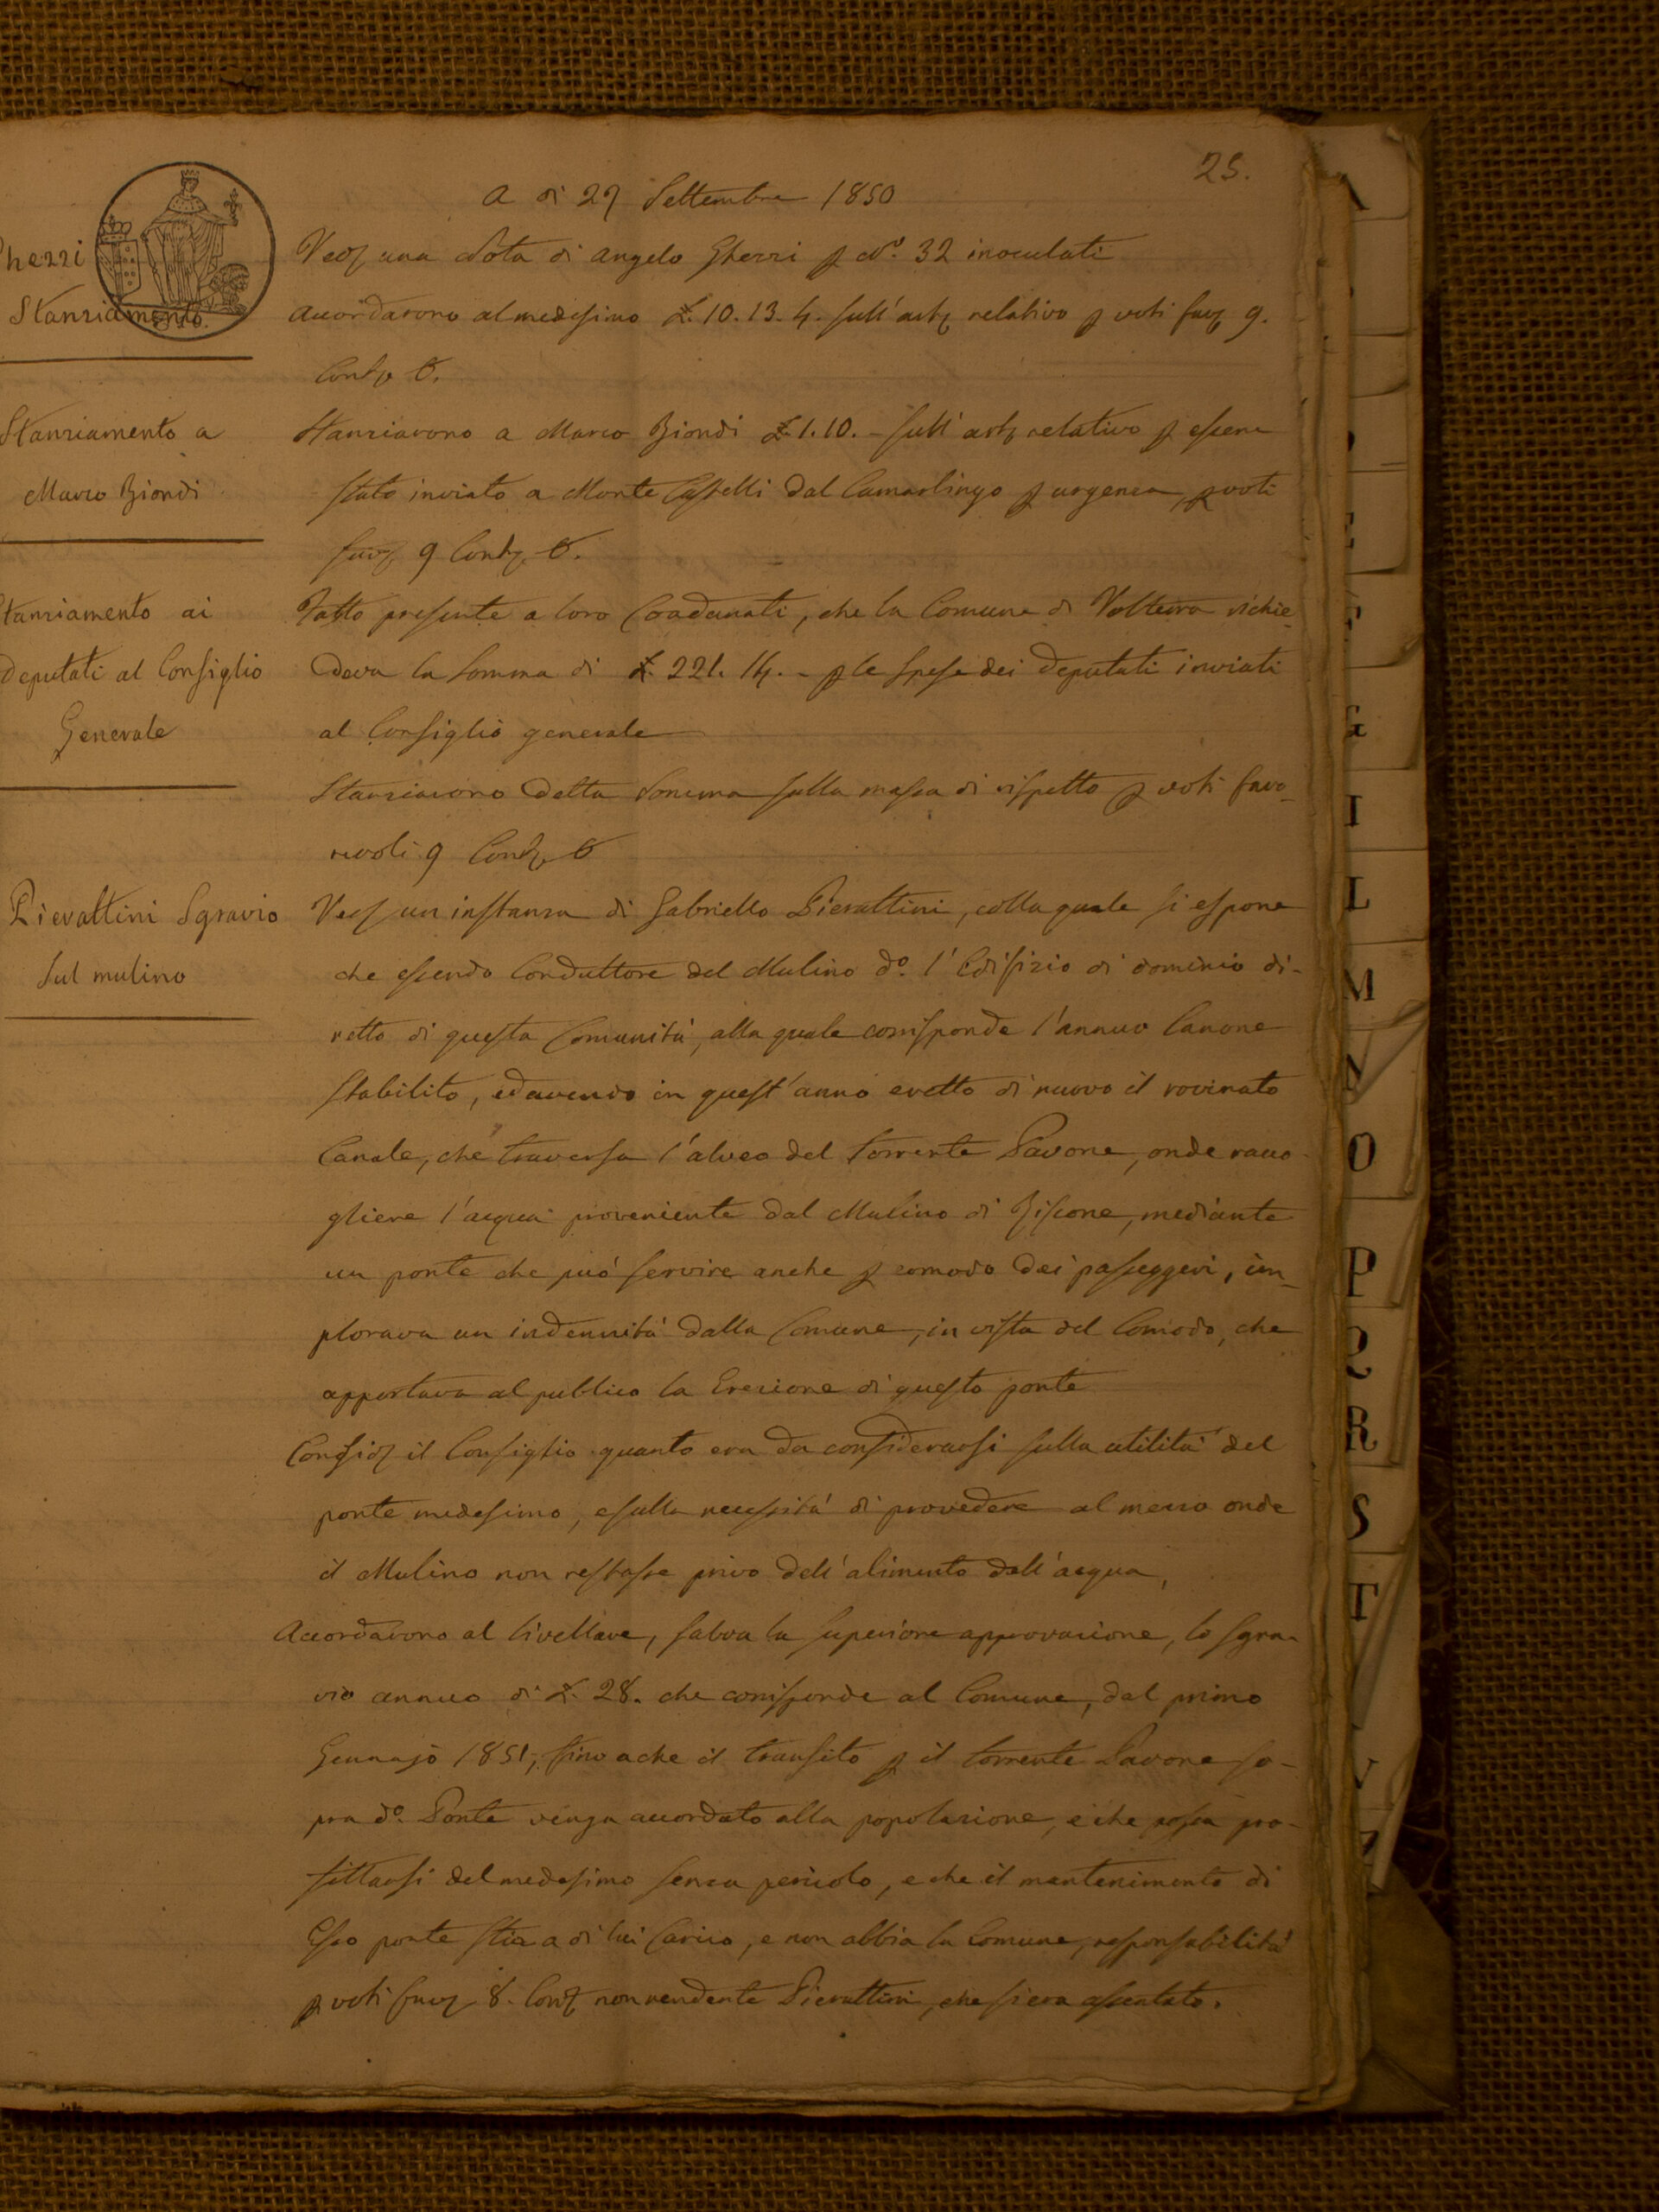 25.
A di 27 Settembre 1850
Ghezzi
Stanziamento.
Ved una Nota di Angelo Ghezzi p N.° 32 inoculati
accordarono al medesimo £. 10. 13. 4. sull'art relativo p voti fav 9.
Cont 0.
Stanziamento a
Marco Biondi
Stanziarono a Marco Biondi £ 1. 10. - sull'art relativo p essere
stato inviato a Monte Castelli dal Camarlingo p urgenza, p voti
fav 9 Cont 0.
Stanziamento ai
Deputati al Consiglio
Generale
Fatto presente a loro Coadunati, che la Comune di Volterra richie-
deva la Somma di £ 221. 14. - p le spese dei Deputati inviati
al Consiglio generale
Stanziarono detta Somma sulla massa di rispetto p voti favo-
revoli 9 Cont 0
Pierattini Sgravio
sul mulino
Ved un instanza di Gabriello Pierattini, colla quale si espone
che essendo Conduttore del Mulino d.° l'Edifizio di dominio di-
retto di questa Comunità, alla quale corrisponde l'annuo Canone
stabilito, ed avendo in quest'anno eretto di nuovo il rovinato
Canale, che traversa l'alveo del torrente Pavone, onde racco-
gliere l'acqua proveniente dal Mulino di Biscone, mediante
un ponte che può servire anche p comodo dei passeggeri, im-
plorava un indennità dalla Comune, in vista del Comodo, che
apportava al publico la Erezione di questo ponte
Consid il Consiglio quanto era da considerarsi sulla utilità del
ponte medesimo, e sulla necessità di provedere al mezzo onde
il Mulino non restasse privo dell'alimento dell'acqua,
Accordarono al livellare, salva la superiore approvazione, lo sgra-
vio annuo di £. 28. che corrisponde al Comune, dal primo
Gennajo 1851, sino a che il transito p il torrente Pavone so-
pra d.° Ponte venga accordato alla popolazione, e che possa pro-
fittarsi del medesimo senza pericolo, e che il mantenimento di
Esso ponte stia a di lui Carico, e non abbia la Comune, responsabilità
p voti fav 8. Cont non rendente Pierattini, che si era assentato.
A
E
F
G
I
L
M
N
O
P
Q
R
S
T
V
Z